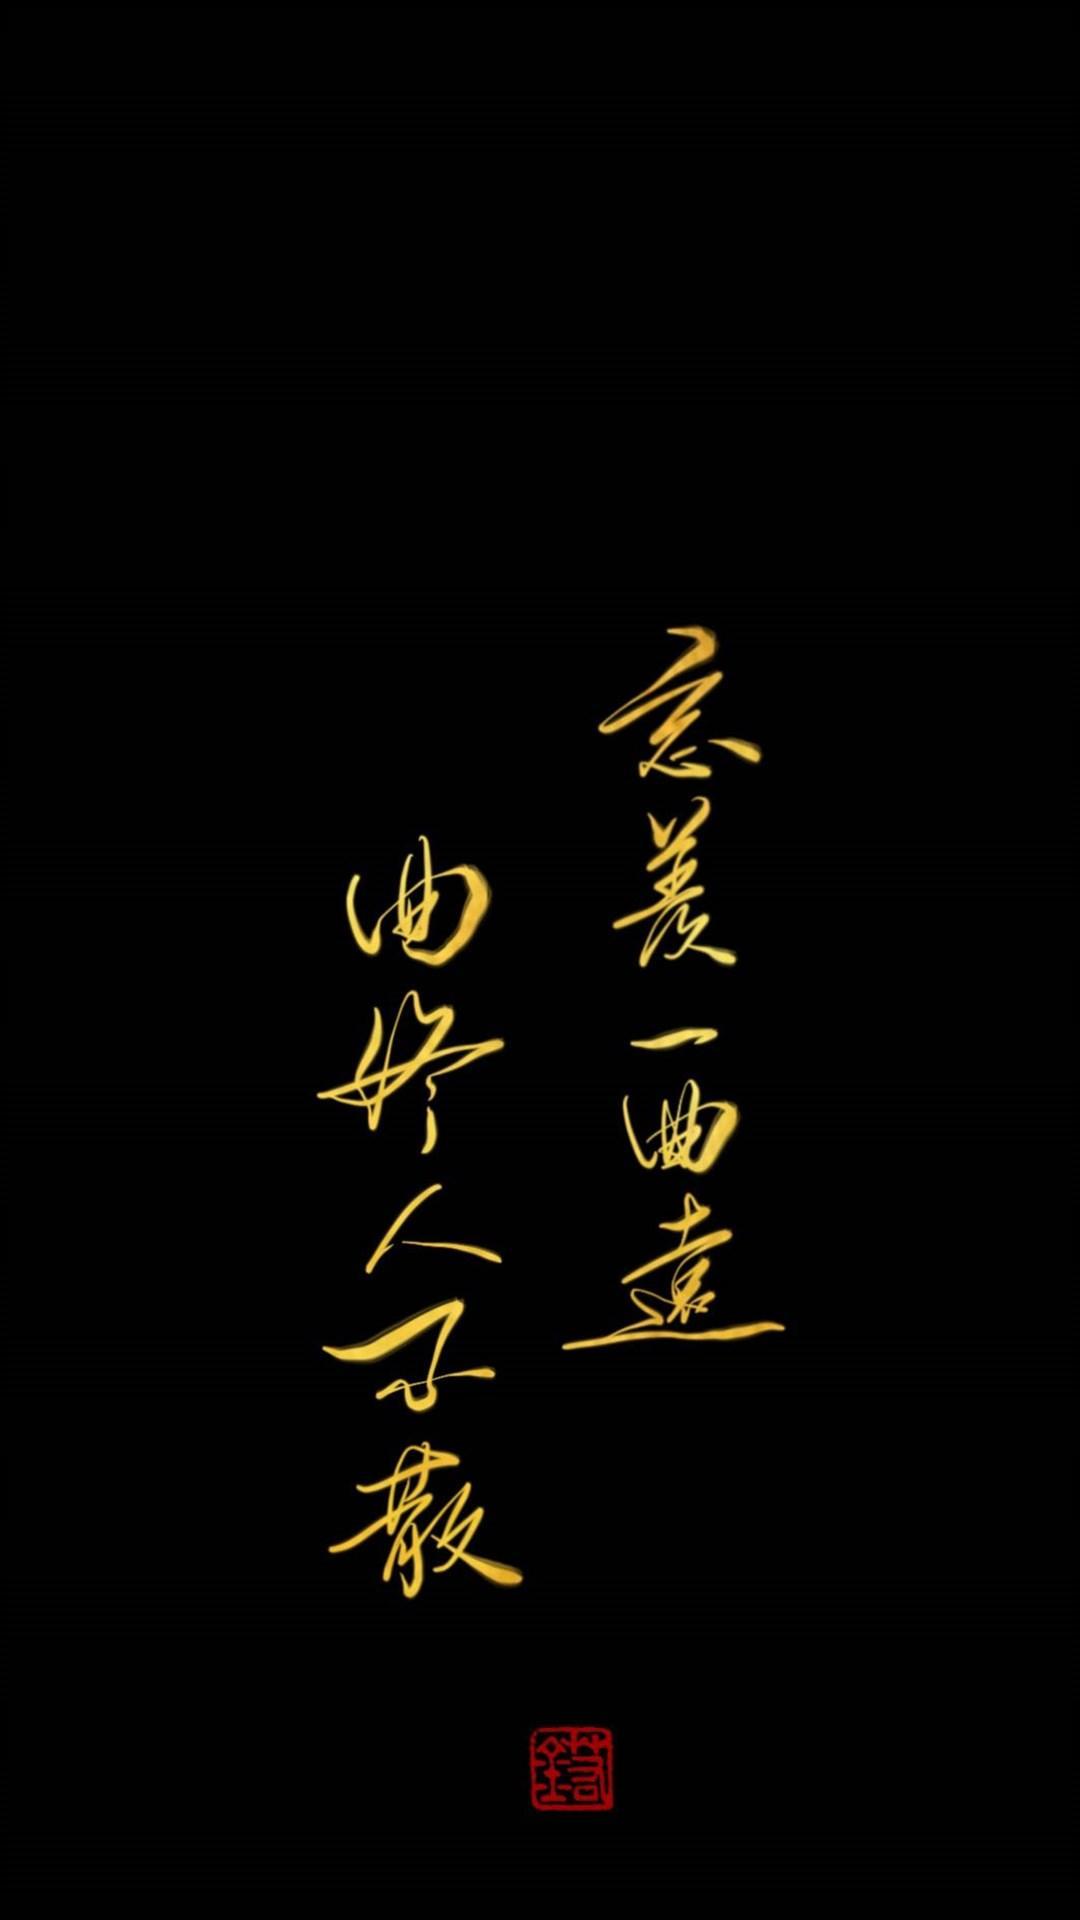 忘羡一曲遠
曲終人不散